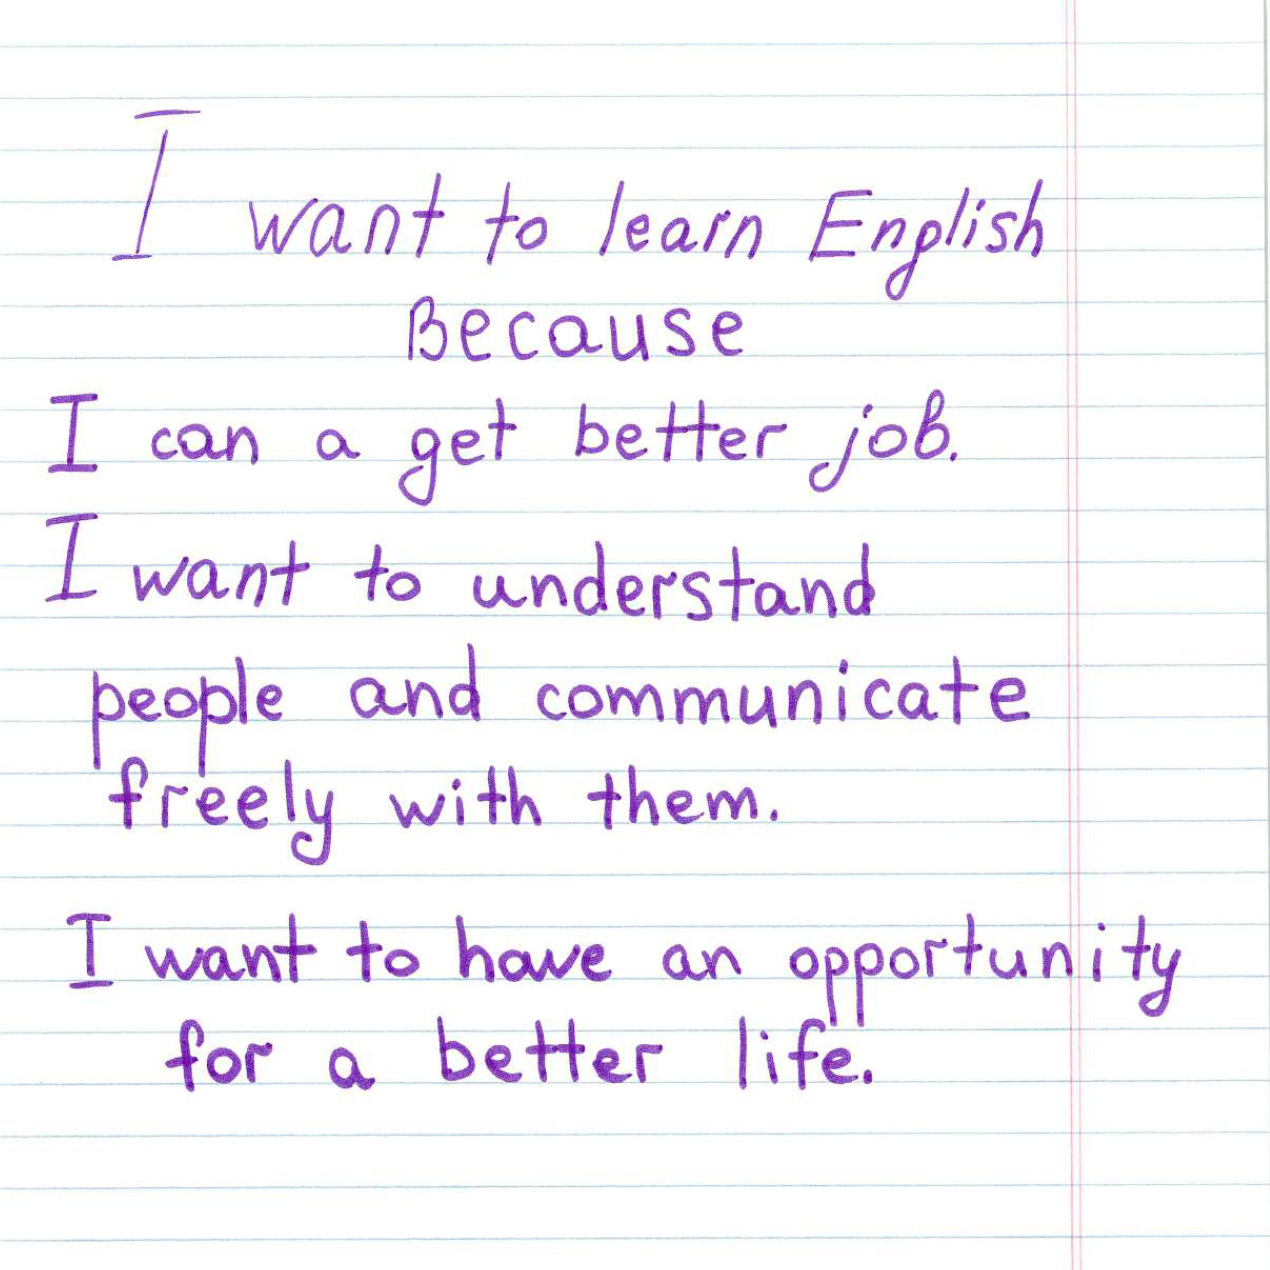 I want to learn English
Because
I can a get better job.
I want to understand
people and communicate
freely with them.
I want to have an opportunity
for a better life.